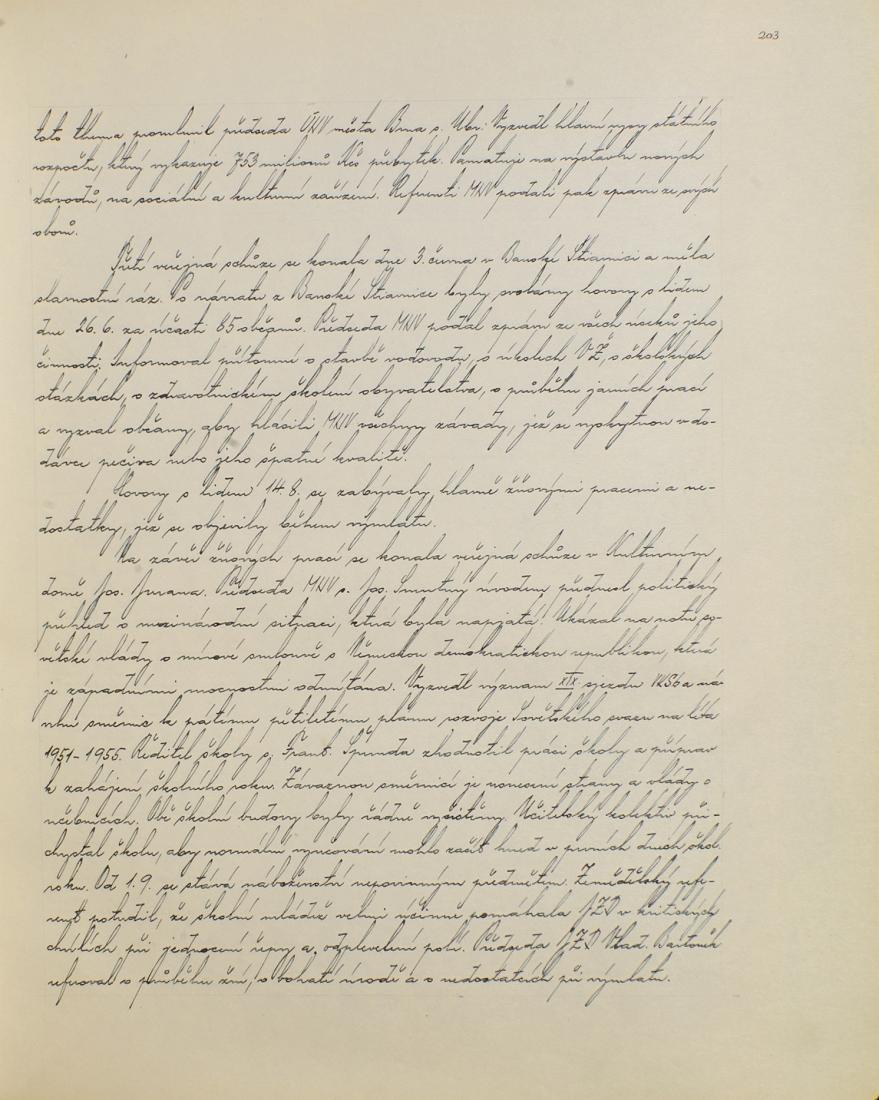 203
toto thema promluvil předseda ÚNV města Brna s. Ubr. Vyzvedl hlavní rysy státního
rozpočtu, který vykazuje 753 milionů Kčs přebytek. Pamatuje na výstavbu nových
závodů, na sociální a kulturní zařízení. Referenti MNV podali pak zprávu ze svých
oborů.
Třetí veřejná schůze se konala dne 3. června v Banské Štiavnici a měla
slavnostní ráz. Po návratu z Banské Štiavnice byly svolány hovory s lidem
dne 26. 6. za účasti 85 občanů. Předseda MNV podal zprávu ze všech úseků jeho
činnosti. Informoval přítomné o stavbě vodovodu, o úkolech VŽ, o školských
otázkách, o zdravotnickém školení obyvatelstva, o průběhu jarních prací
a vyzval občany, aby hlásili MNV všechny závady, jež se vyskytnou v do-
dávce pečiva nebo jeho špatné kvalitě.
Hovory s lidem 14. 8. se zabývaly hlavně žňovými pracemi a ne-
dostatky, jež se objevily během výmlatu.
Na závěr žňových prací se konala veřejná schůze v Kulturním
domě Jos. Jurana. Předseda MNV s. Jos. Smutný úvodem přednesl politický
přehled o mezinárodní situaci, která byla napjatá! Ukázal na notu so-
větské vlády o mírové smlouvě s Německou demokratickou republikou, která
je západními mocnostmi odmítána. Vyzvedl význam XIX. sjezdu VKS(b) a ná-
vrhu směrnic k pátému pětiletému plánu rozvoje Sovětského svazu na léta
1951-1955. Ředitel školy s. Frant. Špunda zhodnotil práci školy a příprav
k zahájení školního roku. Závaznou směrnicí je usnesení strany a vlády o
učebnicích. Obě školní budovy byly řádně vyčištěny. Učitelský kolektiv při-
chystal školu, aby normální vyučování mohlo začít hned v prvních dnech škol.
roku. Od 1. 9. se stává náboženství nepovinným předmětem. Zemědělský refe-
rent potvrdil, že školní mládež velmi účinně pomáhala JZD v kritických
chvílích při jednocení řepy a odplevelení polí. Předseda JZD Vlad. Bartoněk
referoval o průběhu žní, o bohaté úrodě a o nedostatcích při výmlatu.